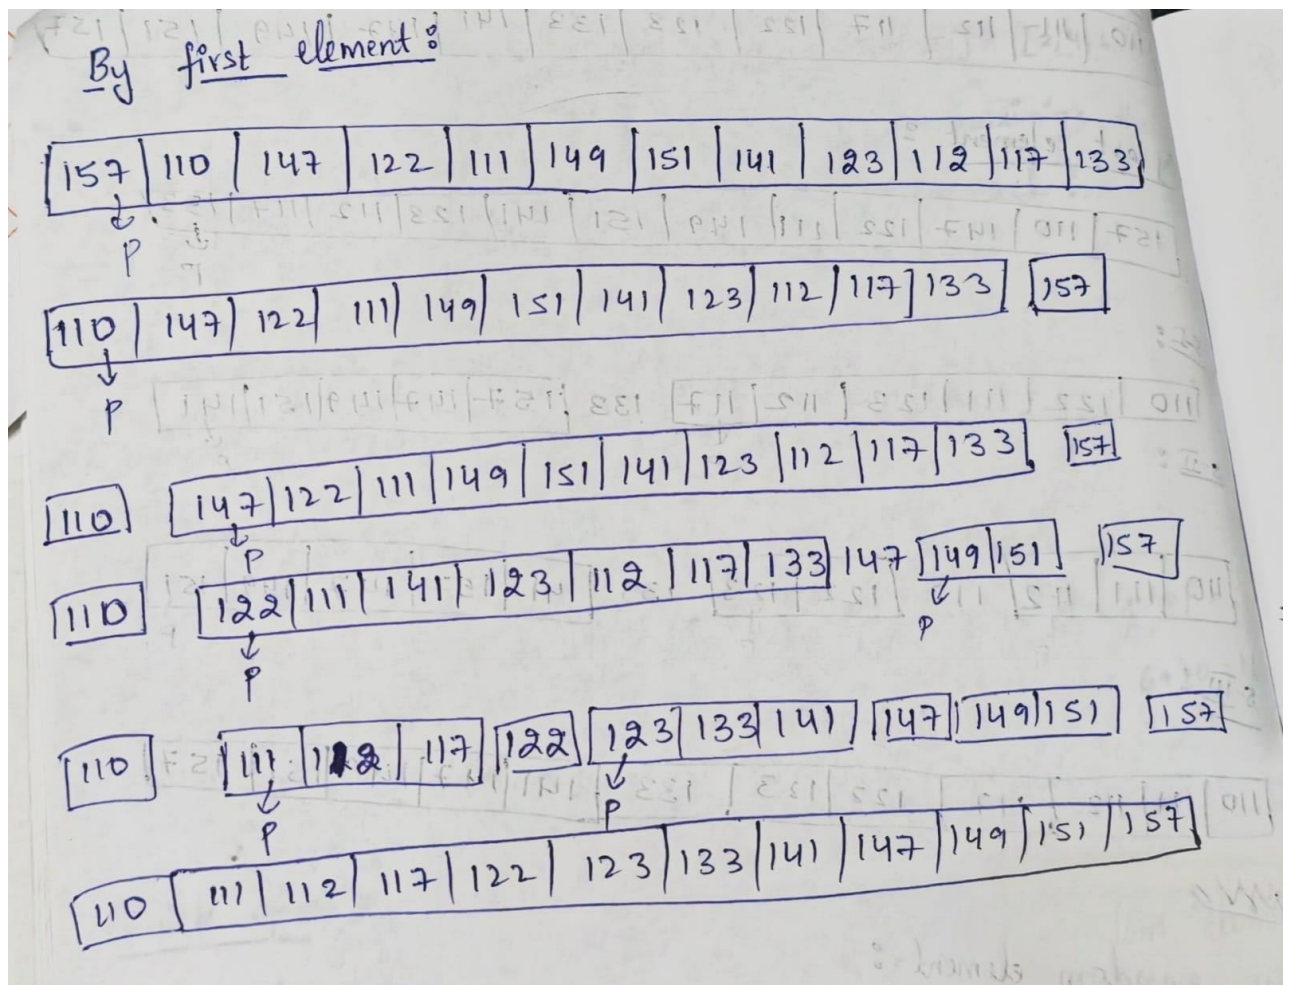 By first element:
157 110 147 122 111 149 151 141 123 112 117 133
P
110 147 122 111 149 151 141 123 112 117 133 157
P
110 147 122 111 149 151 141 123 112 117 133 157
P
110 122 111 141 123 112 117 133 147 149 151 157
P P
110 111 112 117 122 123 133 141 147 149 151 157
P P
110 111 112 117 122 123 133 141 147 149 151 157